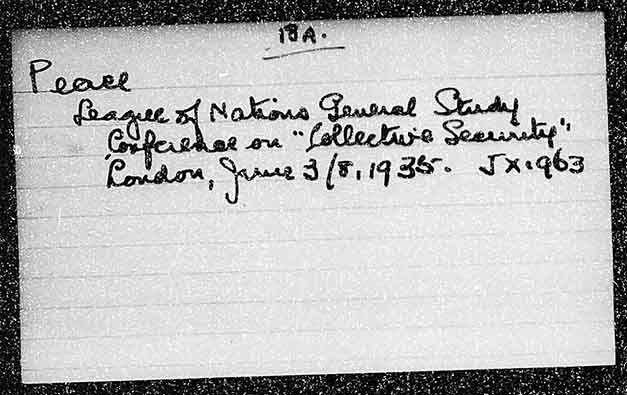 18A.
Peace
League of Nations General Study
Conference on "Collective Security"
London, June 3/8, 1935. JX.963